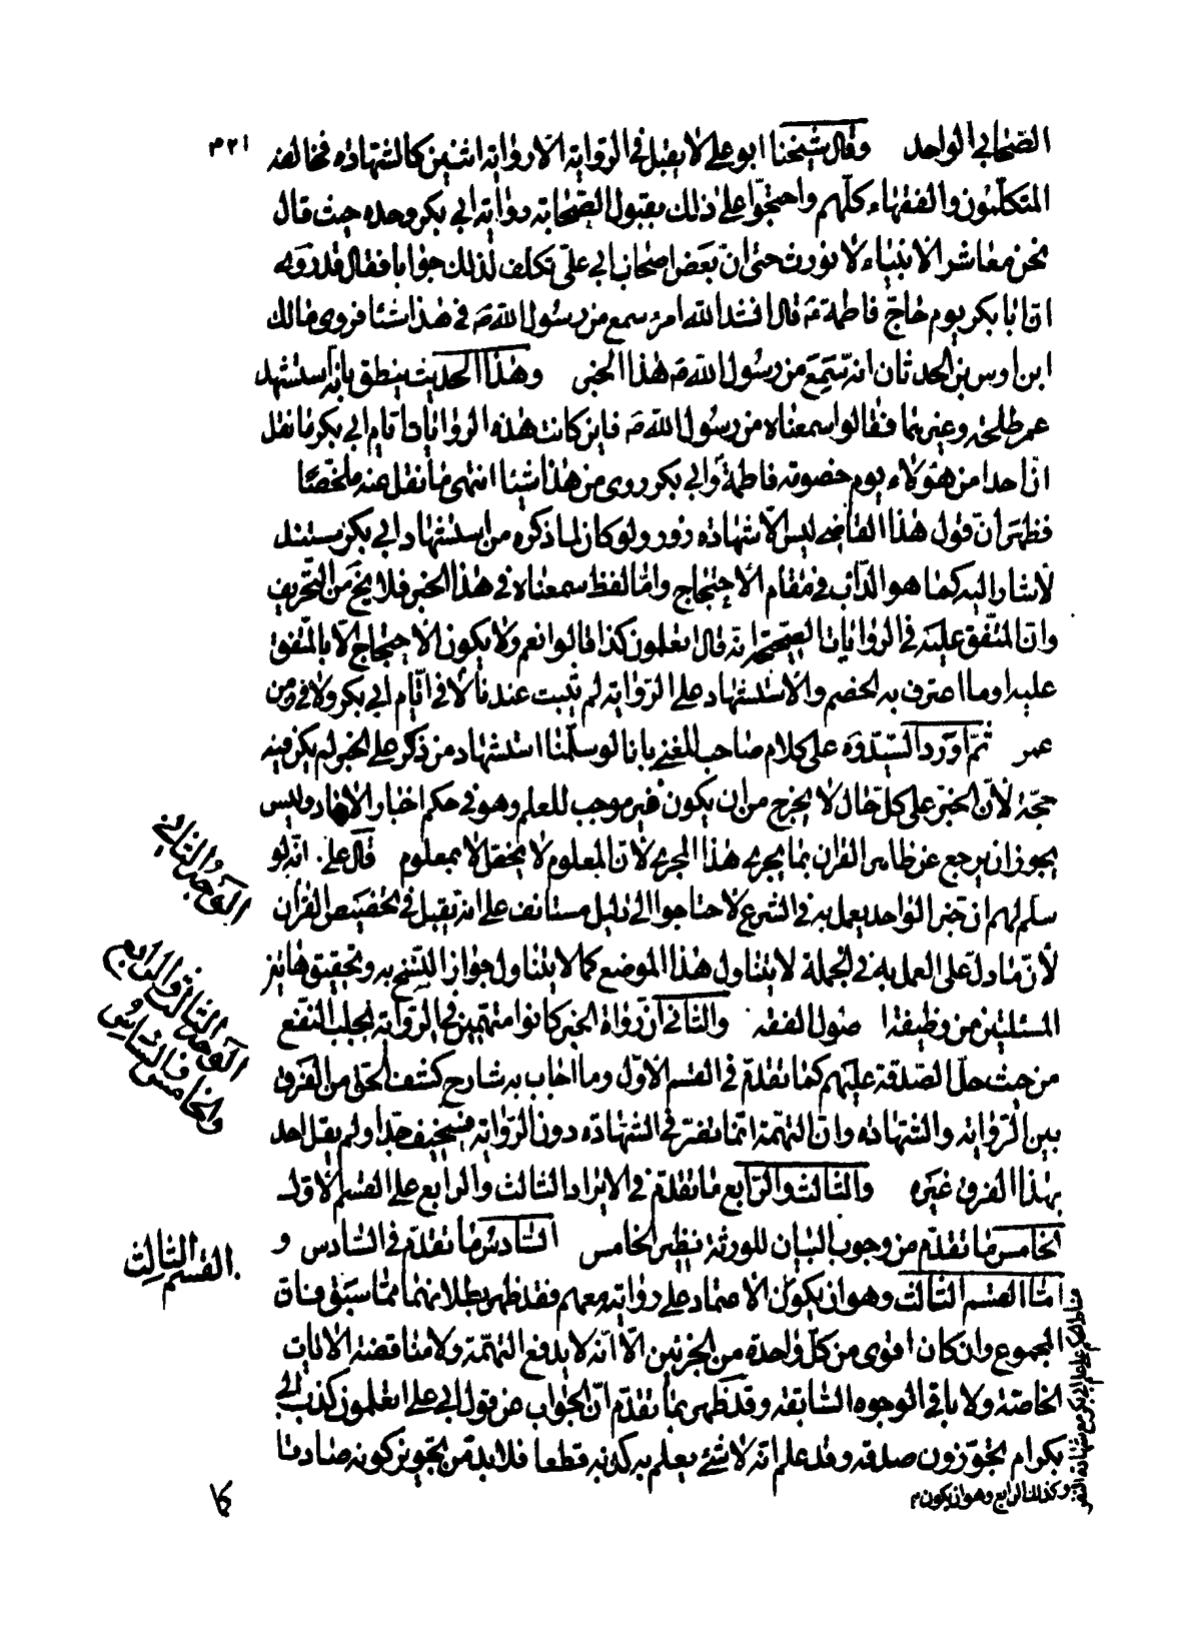 الصحابي الواحد وقال شيخنا ابو علي لا يقبل في الرواية الا رواية اثنين كالشهادة فخالفه
المتكلمون والفقهاء كلهم واحتجوا على ذلك بقبول الصحابة رواية ابي بكر وحده حيث قال
نحن معاشر الانبياء لا نورث حتى ان بعض اصحاب ابي علي تكلف لذلك جوابا فقال قد روي
ان ابا بكر يوم حاج فاطمة ع قال انشد الله امرء سمع من رسول الله ص في هذا شيئا فروى مالك
ابن اوس بن الحدثان انه سمع من رسول الله ص هذا الخبر وهذا الحديث ينطق بانه استشهد
عمر طلحة وغيرهما فقالوا سمعناه من رسول الله ص فاين كانت هذه الروايات ايام ابي بكر ما نقل
ان احدا من هؤلاء يوم خصومة فاطمة ع وابي بكر روى من هذا شيئا انتهى ما نقل عنه ملخصا
فظهر أن قول هذا القاضي ليس الا شهادة زور ولو كان لما ذكره من استشهاد ابي بكر مستند
لأشار اليه كما هو الدأب في مقام الاحتجاج واما لفظ سمعناه في هذا الخبر فلا يخ من التحريف
وان المتفق عليه في الروايات الصحيحة انه قال اتعلمون كذا قالوا نعم ولا يكون الاحتجاج الا بالمتفق
عليه او ما اعترف به الخصم والاستشهاد على الرواية لم يثبت عندنا لا في ايام ابي بكر ولا في زمن
عمر ثم اورد السيد ره على كلام صاحب المغني بانا لو سلمنا استشهاد من ذكر على الخبر لم يكن فيه
حجة لأن الخبر على كل حال لا يخرج من ان يكون غير موجب للعلم وهو في حكم اخبار الاحاد وليس
يجوز ان يرجع عن ظاهر القران بما يجري هذا المجرى لان المعلوم لا يخص الا بمعلوم قال على انه لو
سلم لهم ان خبر الواحد يعمل به في الشرع لاحتاجوا الى دليل مستانف على انه يقبل في تخصيص القران
لأن ما دل على العمل به في الجملة لا يتناول هذا الموضع كما لا يتناول جواز النسخ به وتحقيق هاتين
المسئلتين من وظيفة اصول الفقه والثاني أن رواة الخبر كانوا متهمين في الرواية بجلب النفع
من حيث حل الصدقة عليهم كما تقدم في القسم الاول وما اجاب به شارح كشف الحق من الفرق
بين الرواية والشهادة وان التهمة انما تضر في الشهادة دون الرواية فسخيف جدا ولم يقل احد
بهذا الفرق غيره والثالث والرابع ما تقدم في الايراد الثالث والرابع على القسم الاول
الخامس ما تقدم من وجوب البيان للورثة نظير الخامس السادس ما تقدم في السادس و
اما القسم الثالث وهو ان يكون الاعتماد على روايته معهم فقد ظهر بطلانهما مما سبق فان
المجموع وان كان اقوى من كل واحدة من الجزئين الا انه لا يدفع التهمة ولا مناقضة الايات
الخاصة ولا باقي الوجوه السابقة وقد ظهر بما تقدم ان الجواب عن قول ابي علي اتعلمون كذب ابي
بكر ام تجوزون صدقه وقد علم انه لا شئ يعلم به كذبه قطعا فلا بد من تجويز كونه صادقا
كما
الوجه الثاني
الوجه الثالث والرابع
والخامس والسادس
القسم الثالث
وكذلك الرابع وهو ان يكون م